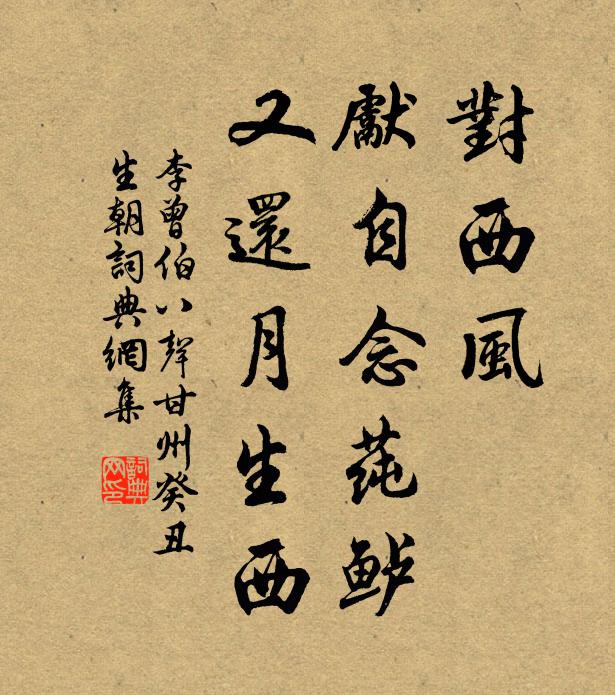 對西風
獻自念莼鲈
又還月生西
李曾伯八聲甘州癸丑
生朝詞典網集
詞典
网印